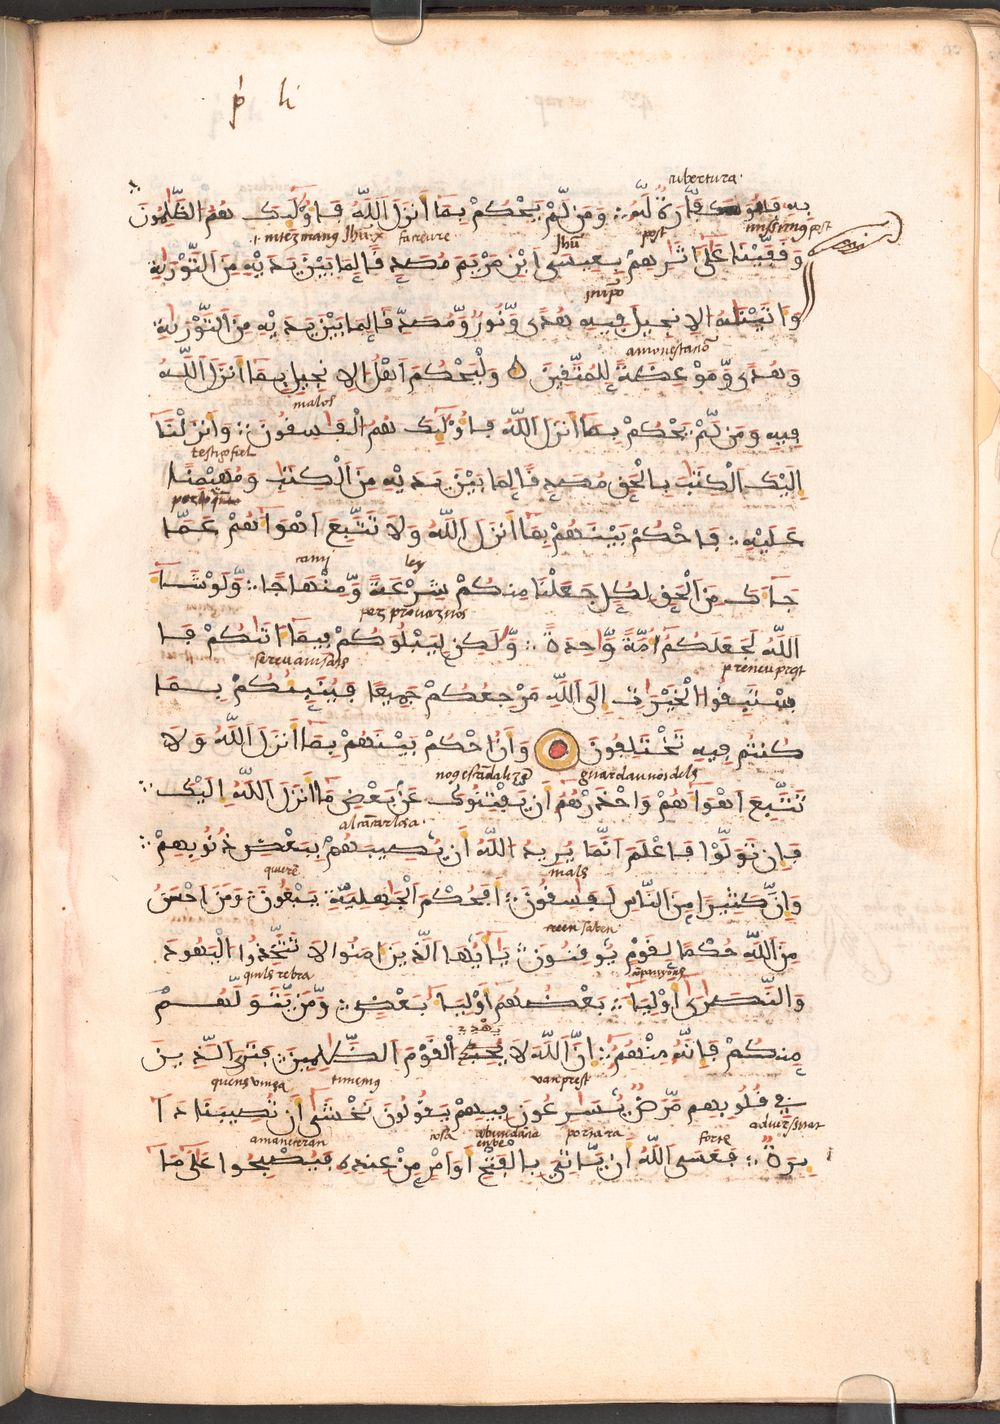 ꝑ li
cubertura
بِهِ فَهُوَ كَفَّارَةٌ لَّهُ وَمَن لَّمْ يَحْكُمْ بِمَا أَنزَلَ اَللَّهُ فَأُوْلَٰٓئِكَ هُمُ الظَّٰلِمُونَ
post
وَقَفَّيْنَا عَلَىٰ ءَاثَٰرِهِمْ بِعِيسَى ابْنِ مَرْيَمَ مُصَدِّقًا لِّمَا بَيْنَ يَدَيْهِ مِنَ اَلتَّوْرَىٰةِ
وَءَاتَيْنَٰهُ الْإِنجِيلَ فِيهِ هُدًى وَّنُورٌ وَّمُصَدِّقًا لِّمَا بَيْنَ يَدَيْهِ مِنَ اَلتَّوْرَىٰةِ
amonestacio
وَهُدًى وَّمَوْعِظَةً لِّلْمُتَّقِينَ وَلْيَحْكُمْ أَهْلُ الْإِنجِيلِ بِمَا أَنزَلَ اَللَّهُ
malos
فِيهِ وَمَن لَّمْ يَحْكُمْ بِمَا أَنزَلَ اَللَّهُ فَأُوْلَٰٓئِكَ هُمُ الْفَٰسِقُونَ وَأَنزَلْنَا
testigo fiel
إِلَيْكَ اَلْكِتَٰبَ بِالْحَقِّ مُصَدِّقًا لِّمَا بَيْنَ يَدَيْهِ مِنَ اَلْكِتَٰبِ وَمُهَيْمِنًا
عَلَيْهِ فَاحْكُمْ بَيْنَهُمْ بِمَا أَنزَلَ اَللَّهُ وَلَا تَتَّبِعْ أَهْوَآءَهُمْ عَمَّا
cami ley
جَآءَكَ مِنَ اَلْحَقِّ لِكُلٍّ جَعَلْنَا مِنكُمْ شِرْعَةً وَّمِنْهَاجًا وَّلَوْ شَآءَ
اَللَّهُ لَجَعَلَكُمْ أُمَّةً وَّٰحِدَةً وَّلَٰكِن لِّيَبْلُوَكُمْ فِيمَا ءَاتَىٰكُمْ فَا
سْتَبِقُوا الْخَيْرَٰتِ إِلَى اَللَّهِ مَرْجِعُكُمْ جَمِيعًا فَيُنَبِّئُكُمْ بِمَا
كُنتُمْ فِيهِ تَخْتَلِفُونَ وَأَنُ احْكُمْ بَيْنَهُمْ بِمَا أَنزَلَ اَللَّهُ وَلَا
guardauuos dels
تَتَّبِعْ أَهْوَآءَهُمْ وَاحْذَرْهُمْ أَن يَّفْتِنُوكَ عَن بَعْضِ مَا أَنزَلَ اَللَّهُ إِلَيْكَ
فَإِن تَوَلَّوْا فَاعْلَمْ أَنَّمَا يُرِيدُ اَللَّهُ أَن يُّصِيبَهُمْ بِبَعْضِ ذُنُوبِهِمْ
quiere mals
وَإِنَّ كَثِيرًا مِّنَ اَلنَّاسِ لَفَٰسِقُونَ أَفَحُكْمَ اَلْجَٰهِلِيَّةِ يَبْغُونَ وَمَنْ أَحْسَنُ
creen saben
مِنَ اَللَّهِ حُكْمًا لِّقَوْمٍ يُوقِنُونَ يَٰٓأَيُّهَا اَلَّذِينَ ءَامَنُوا لَا تَتَّخِذُوا الْيَهُودَ
quils rebra
وَالنَّصَٰرَىٰ أَوْلِيَآءَ بَعْضُهُمْ أَوْلِيَآءُ بَعْضٍ وَّمَن يَّتَوَلَّهُم
يَهْدِي
مِّنكُمْ فَإِنَّهُ مِنْهُمْ إِنَّ اَللَّهَ لَا يُحِبُّ الْقَوْمَ اَلظَّٰلِمِينَ فَتَرَى اَلَّذِينَ
van prest
فِي قُلُوبِهِم مَّرَضٌ يُّسَٰرِعُونَ فِيهِمْ يَقُولُونَ نَخْشَىٰ أَن تُصِيبَنَا دَآ
amaneceran cosa abundacia portara forte aduersitat
ئِرَةٌ فَعَسَى اَللَّهُ أَن يَّأْتِيَ بِالْفَتْحِ أَوْ أَمْرٍ مِّنْ عِندِهِ فَيُصْبِحُوا عَلَىٰ مَا